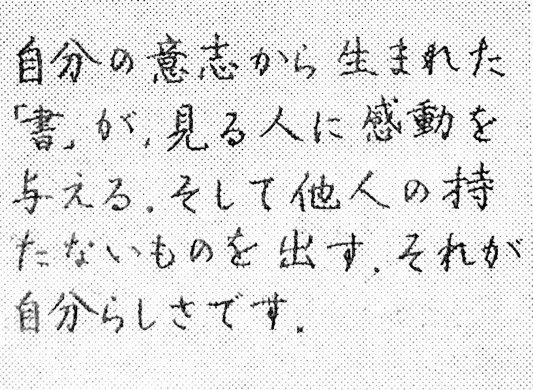 自分の意志から生まれた
「書」が,見る人に感動を
与える.そして他人の持
たないものを出す.それが
自分らしさです.